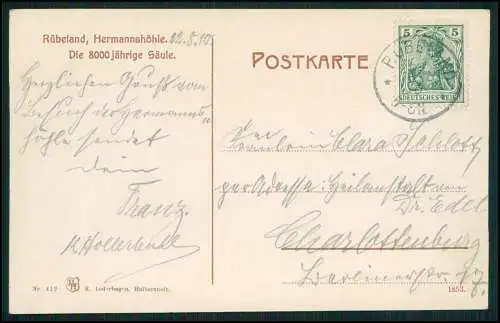 Rübeland, Hermannshöhle. 02.8.10.
Die 8000jährige Säule.
POSTKARTE
5 5
DEUTSCHES REICH
Herzlichen Gruß vom
Besuch der Hermanns„
höhle sendet
Dein
Franz.
Fräulein Clara Schlott
per Adresse: Heilanstalt von
Dr. Edel
Charlottenburg
Berlinerstr. 17.
Nr. 412. R. Lederbogen, Halberstadt. 1853.